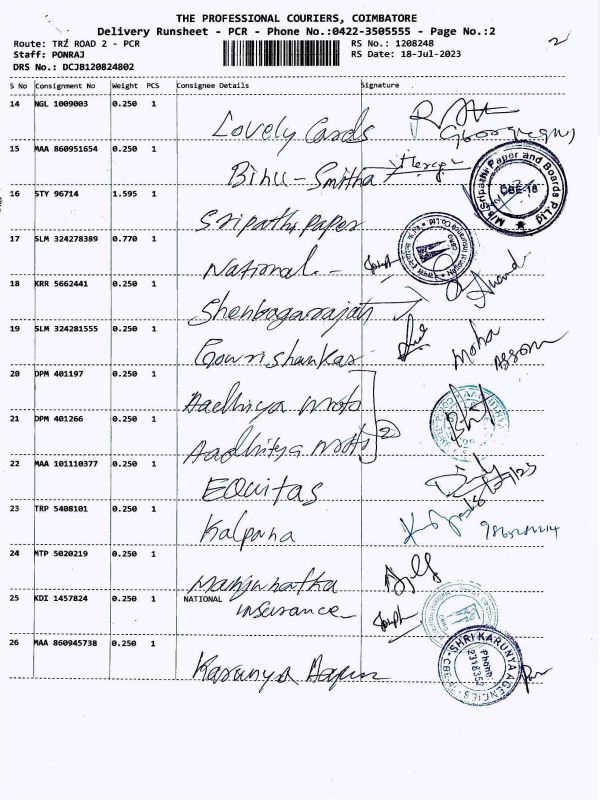 THE PROFESSIONAL COURIERS, COIMBATORE
2
Delivery Runsheet - PCR - Phone No.:0422-3505555 - Page No.:2
Route: TRZ ROAD 2 - PCR
RS No.: 1208248
Staff: PONRAJ
RS Date: 18-Jul-2023
DRS No.: DCJB120824802
S No Consignment No Weight PCS Consignee Details Signature
14 NGL 1009003 0.250 1 Lovely Cards
15 MAA 860951654 0.250 1 Binu-Smitha
M/s.Sripathi Paper and Boards P.Ltd
CBE-18
16 STY 96714 1.595 1 Sripathi paper
17 SLM 324278389 0.770 1 National - Joseph
18 KRR 5662441 0.250 1 Shenbagarajan Anand
19 SLM 324281555 0.250 1 Gowrishankar Moha
20 DPM 401197 0.250 1 Aadhitya moto
21 DPM 401266 0.250 1 Aadhitya moto 2
22 MAA 101110377 0.250 1 Equitas
23 TRP 5408101 0.250 1 Kalpana
24 MTP 5020219 0.250 1 Manjunatha
25 KDI 1457824 0.250 1 NATIONAL insurance Joseph
26 MAA 860945738 0.250 1 Karunya
SHRI KARUNYA AGENCIES
Phone
2316352